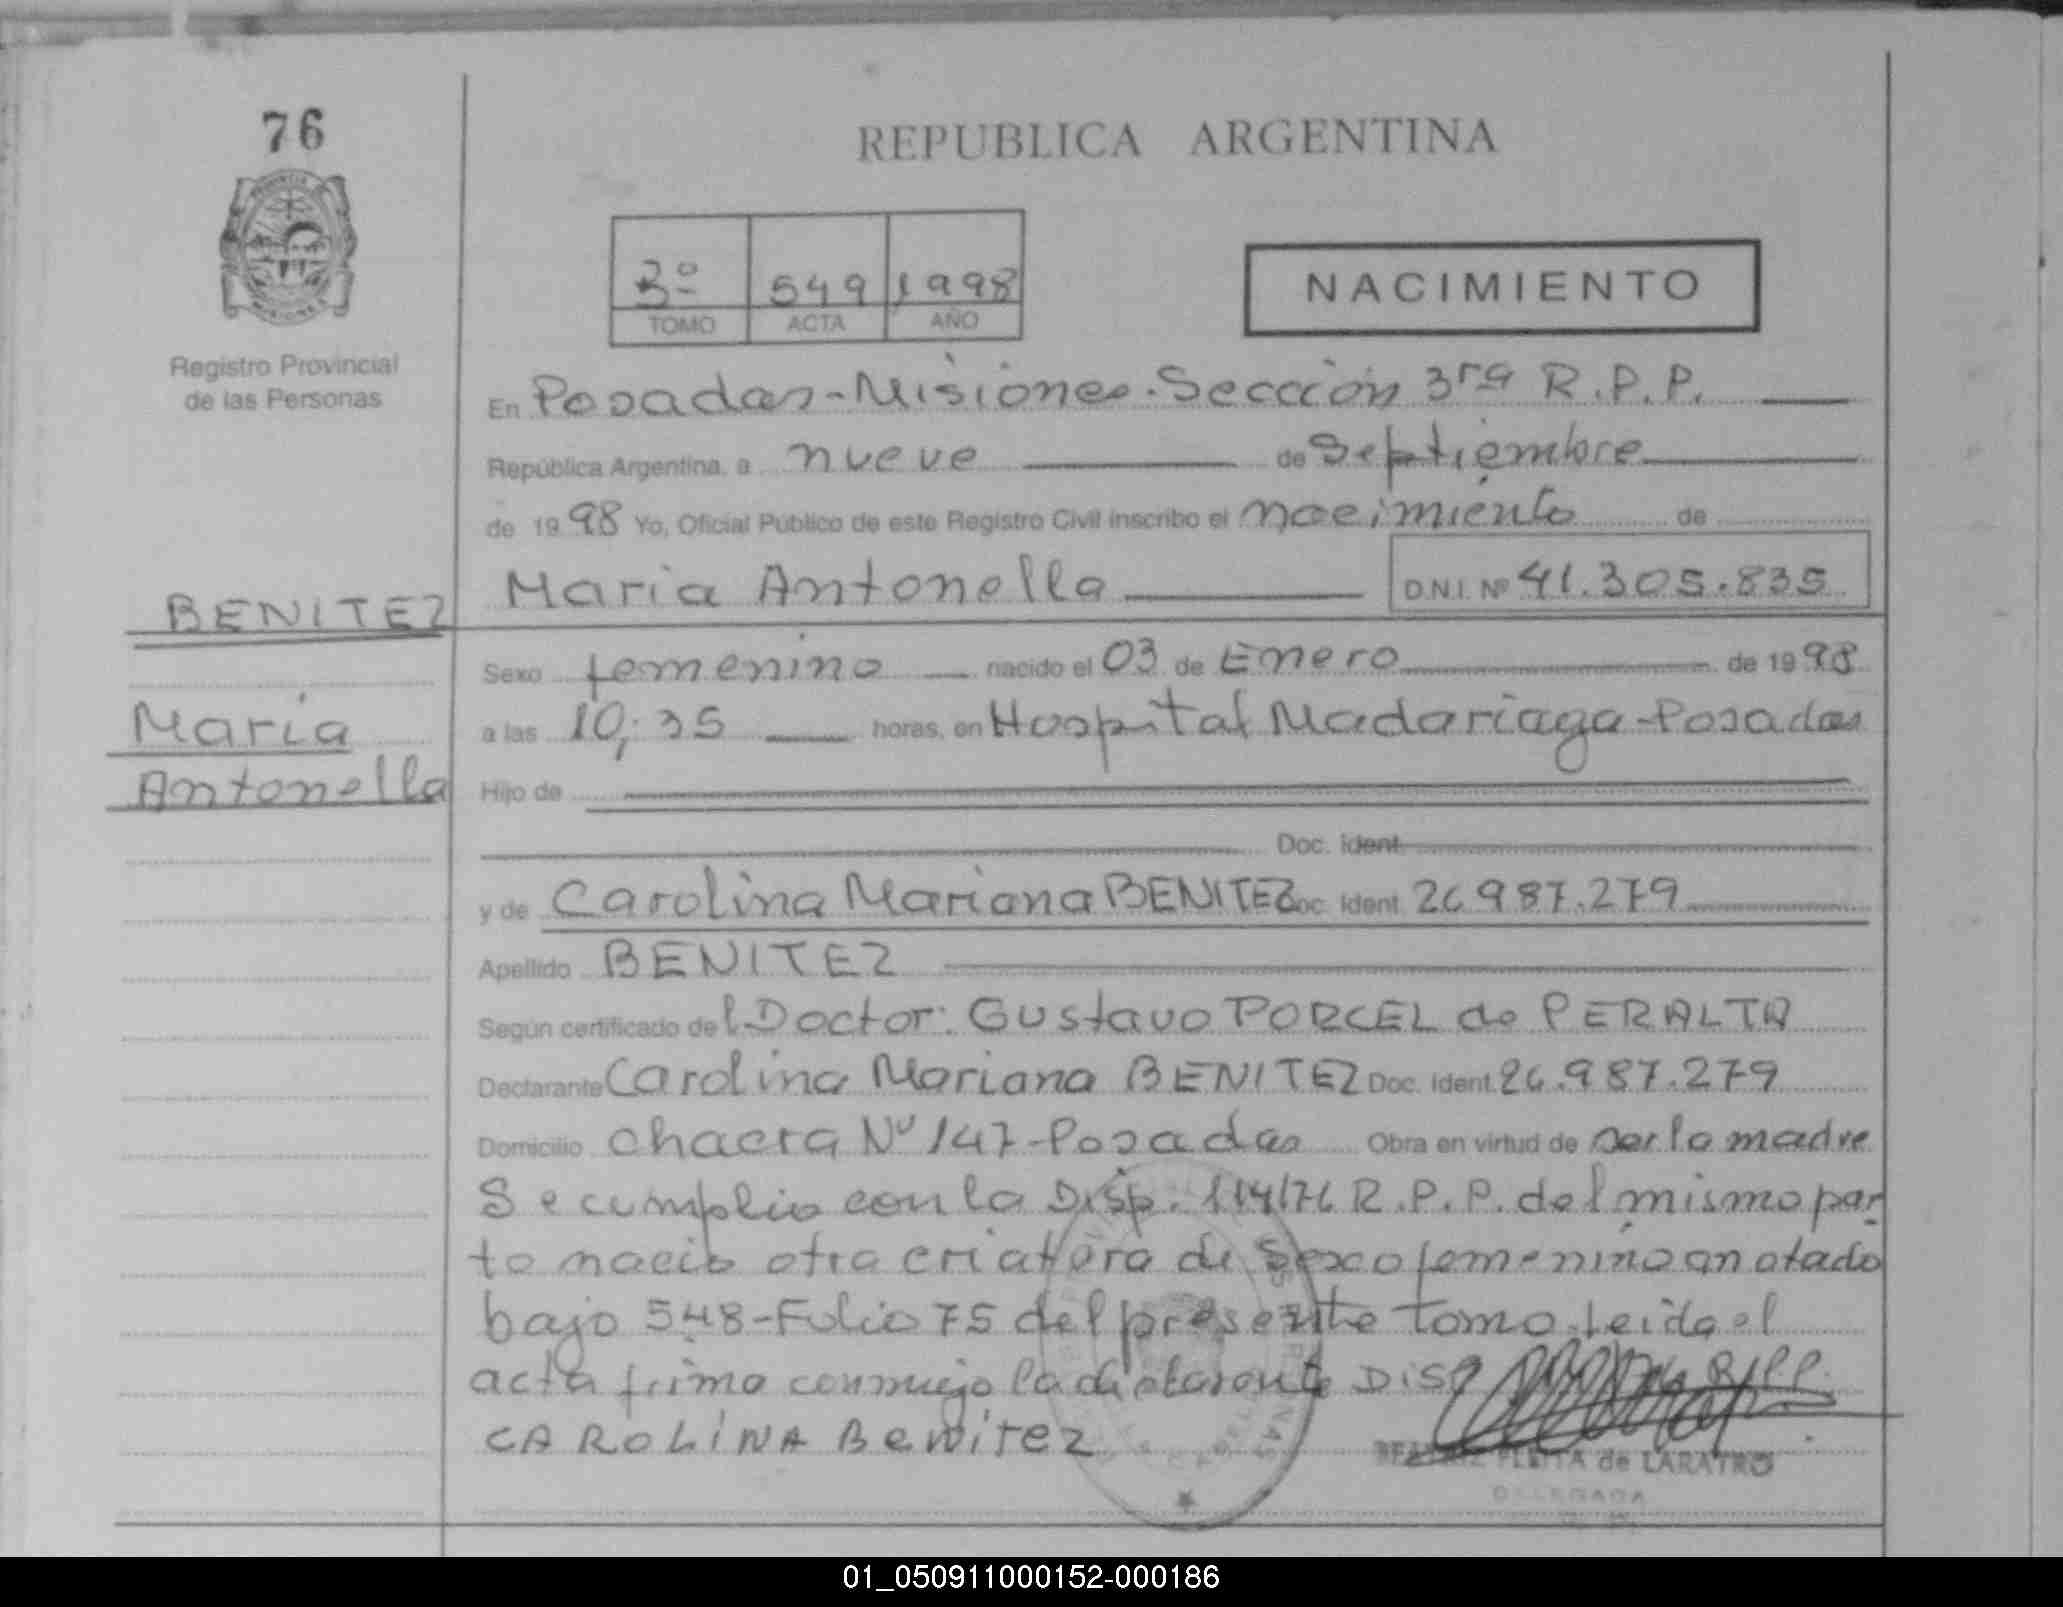 76
REPUBLICA ARGENTINA
3º 549 1998
TOMO ACTA AÑO
NACIMIENTO
Registro Provincial
de las Personas
En Posadas-Misiones-Sección 3ra R.P.P.
República Argentina, a nueve de Septiembre
de 1998 Yo, Oficial Público de este Registro Civil inscribo el nacimiento de
Maria Antonella D.N.I. Nº 41.305.835
BENITEZ
Maria
Antonella
Sexo femenino nacido el 03 de Enero de 1998
a las 10:35 horas, en Hospital Madariaga-Posadas
Hijo de
Doc. Ident.
y de Carolina Mariana BENITEZ Doc. Ident. 26.987.279
Apellido BENITEZ
Según certificado del Doctor: Gustavo PORCEL de PERALTA
Declarante Carolina Mariana BENITEZ Doc. Ident. 26.987.279
Domicilio chacra Nº 147-Posadas Obra en virtud de ser la madre
Se cumplio con la Disp. 114/76 R.P.P. del mismo par
to nacio otra criatura de Sexo femenino anotado
bajo 548-Folio 75 del presente tomo. Leida el
acta firma conmigo la declarante Disp R.P.P.
CAROLINA BeniTez
PLEITA de LARATRO
DELEGADA
01_050911000152-000186